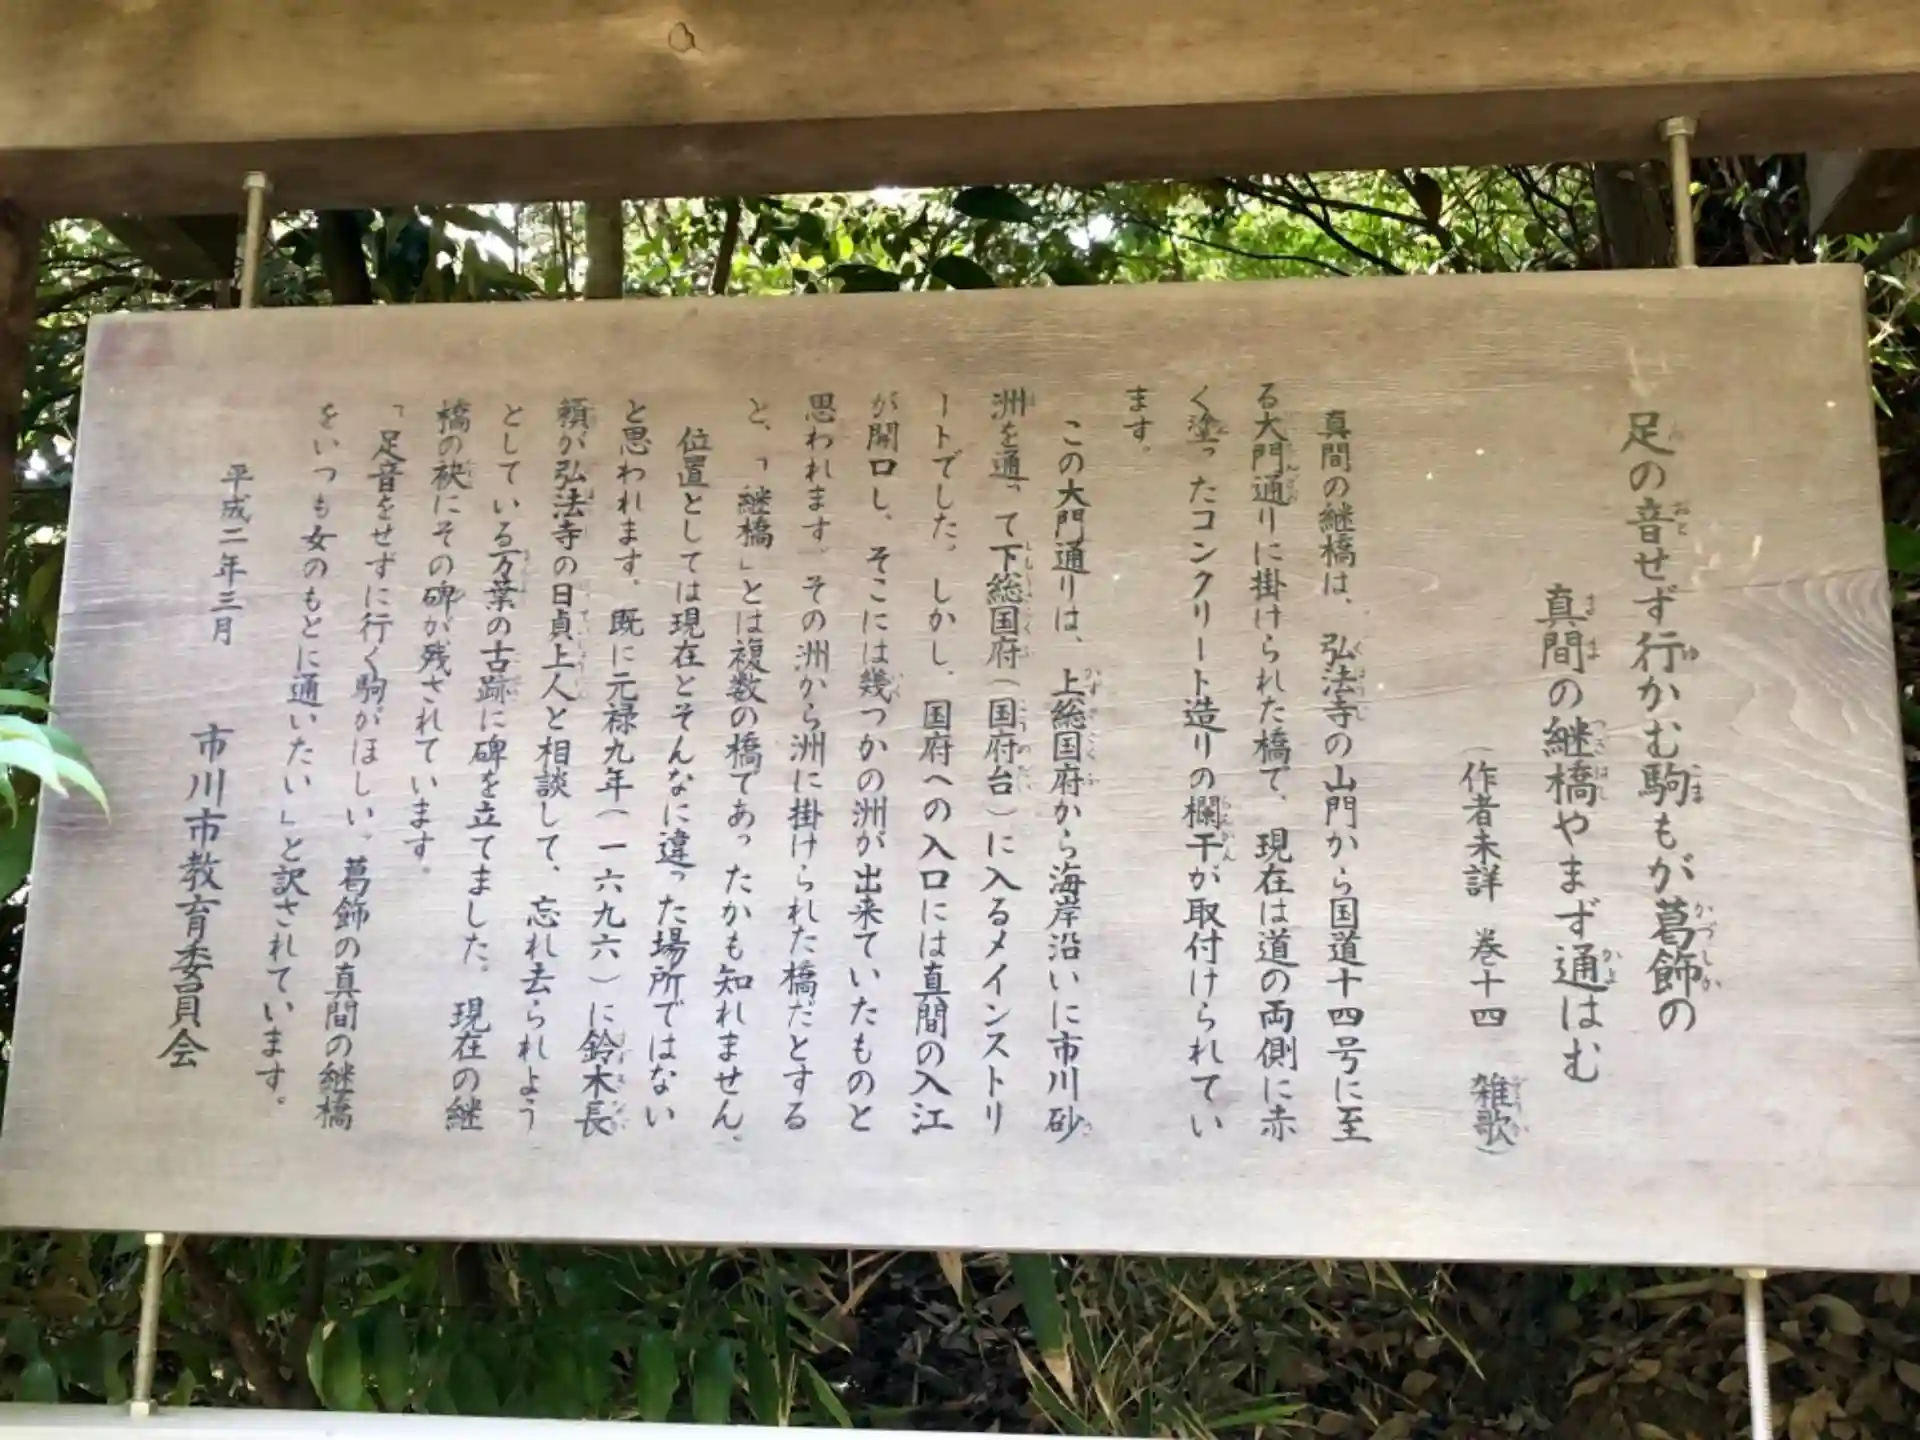 足の音せず行かむ駒もが葛飾の
真間の継橋やまず通はむ
(作者未詳 巻十四 雑歌)
真間の継橋は、弘法寺の山門から国道十四号に至
る大門通りに掛けられた橋で、現在は道の両側に赤
く塗ったコンクリート造りの欄干が取付けられてい
ます。
この大門通りは、上総国府から海岸沿いに市川砂
洲を通って下総国府(国府台)に入るメインストリ
ートでした。しかし、国府への入口には真間の入江
が開口し、そこには幾つかの洲が出来ていたものと
思われます。その洲から洲に掛けられた橋だとする
と、「継橋」とは複数の橋であったかも知れません。
位置としては現在とそんなに違った場所ではない
と思われます。既に元禄九年(一六九六)に鈴木長
頼が弘法寺の日貞上人と相談して、忘れ去られよう
としている万葉の古跡に碑を立てました。現在の継
橋の袂にその碑が残されています。
「足音をせずに行く駒がほしい、葛飾の真間の継橋
をいつも女のもとに通いたい」と訳されています。
平成二年三月
市川市教育委員会